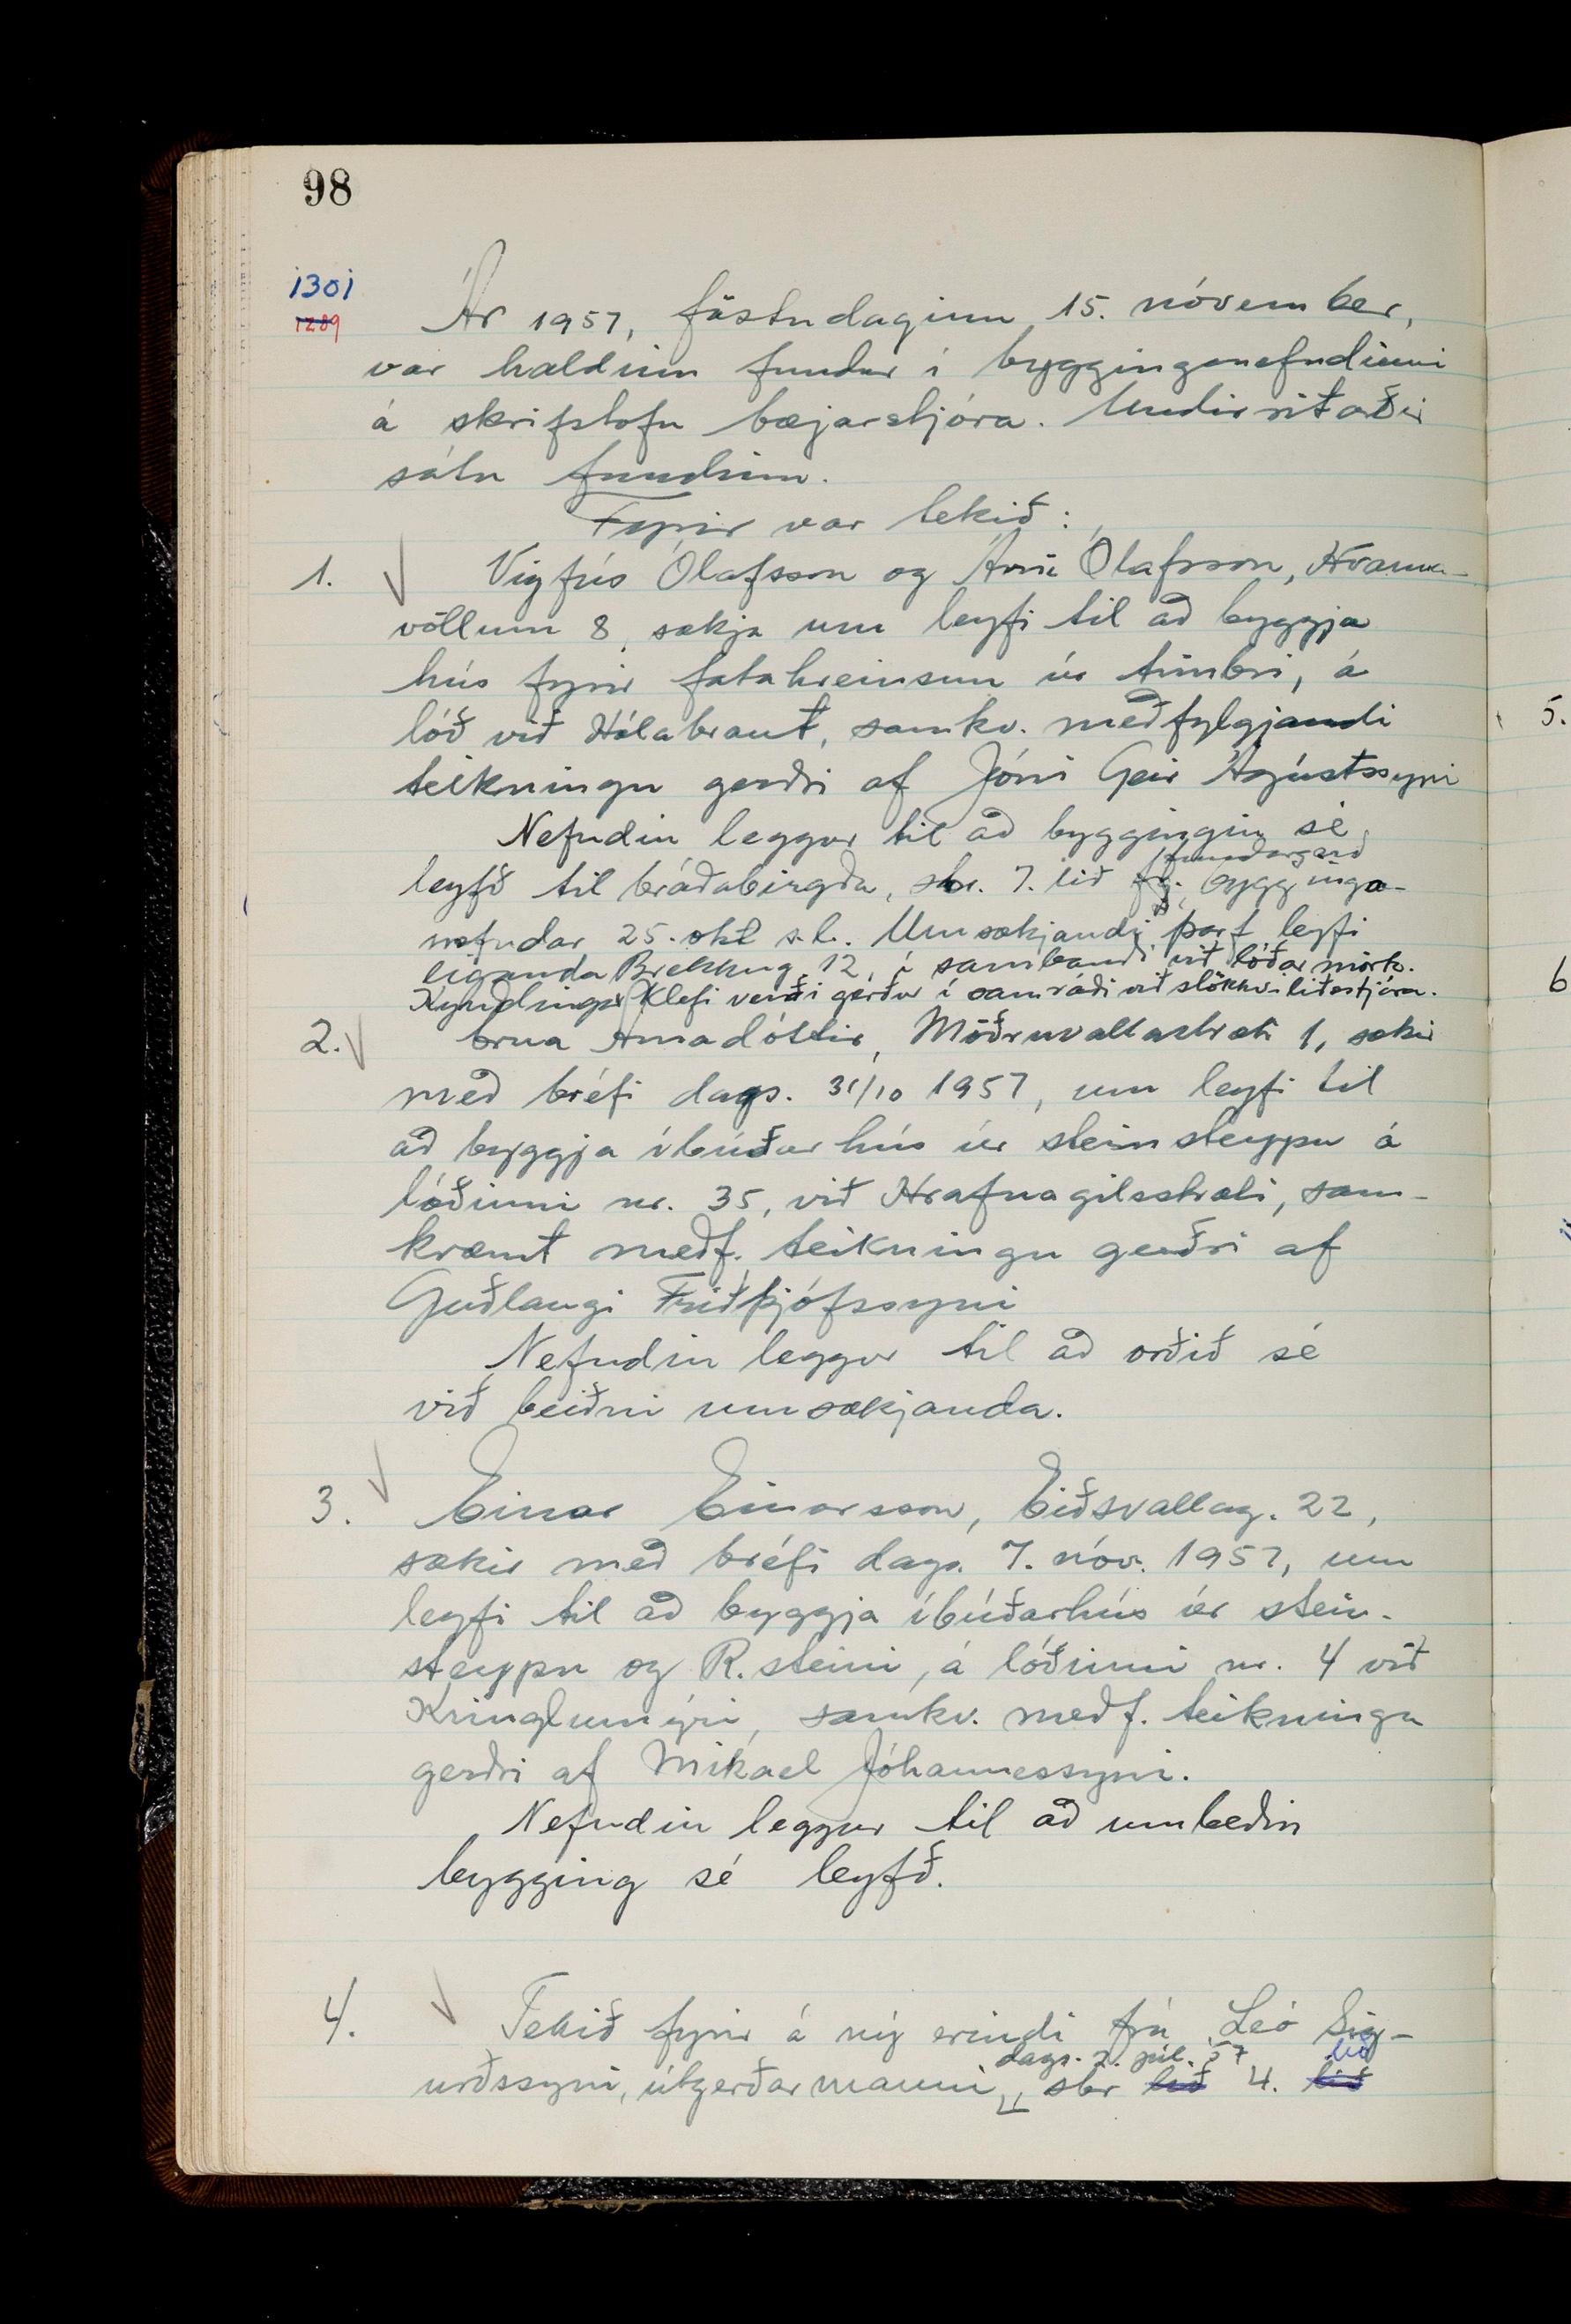 98
1301
1289
Ár 1957, föstudaginn 15. nóvember,
var haldinn fundur í bygginganefndinni
á skrifstofu bæjarstjóra. Undirritaðir
sátu fundinn.
Fyrir var tekið:
1. Vigfús Ólafsson og Árni Ólafsson, Hvanna-
völlum 8, sækja um leyfi til að byggja
hús fyrir fatahreinsun úr timbri, á
lóð við Hólabraut, samkv. meðfylgjandi
teikningu gerðri af Jóni Geir Ágústssyni
Nefndin leggur til að byggingin sé
fundargerð
leyfð til bráðabirgða, sbr. 7. lið bygginga-
nefndar 25. okt s.l. Umsækjandi þarf leyfi
eiganda Brekkug. 12, í sambandi við lóðarmörk.
Kyndingar klefi verði gerður í samráði við slökkviliðsstjóra.
2. Erna Árnadóttir, Möðruvallastræti 1, sækir
með bréfi dags. 31/10 1957, um leyfi til
að byggja íbúðarhús úr steinsteypu á
lóðinni nr. 35, við Hrafnagilsstræti, sam-
kvæmt meðf. teikningu gerðri af
Guðlaugi Friðþjófssyni
Nefndin leggur til að orðið sé
við beiðni umsækjanda.
3. Einar Einarsson, Eiðsvallag. 22,
sækir með bréfi dags. 7. nóv. 1957, um
leyfi til að byggja íbúðarhús úr stein-
steypu og R.steini, á lóðinni nr. 4 við
Kringlumýri, samkv. meðf. teikningu
gerðri af Mikael Jóhannessyni.
Nefndin leggur til að umbeðin
bygging sé leyfð.
4. Tekið fyrir á ný erindi frá Leó Sig-
dags. 2. júl. 57 lið
urðssyni, útgerðarmanni, sbr lið 4. lið
5.
6